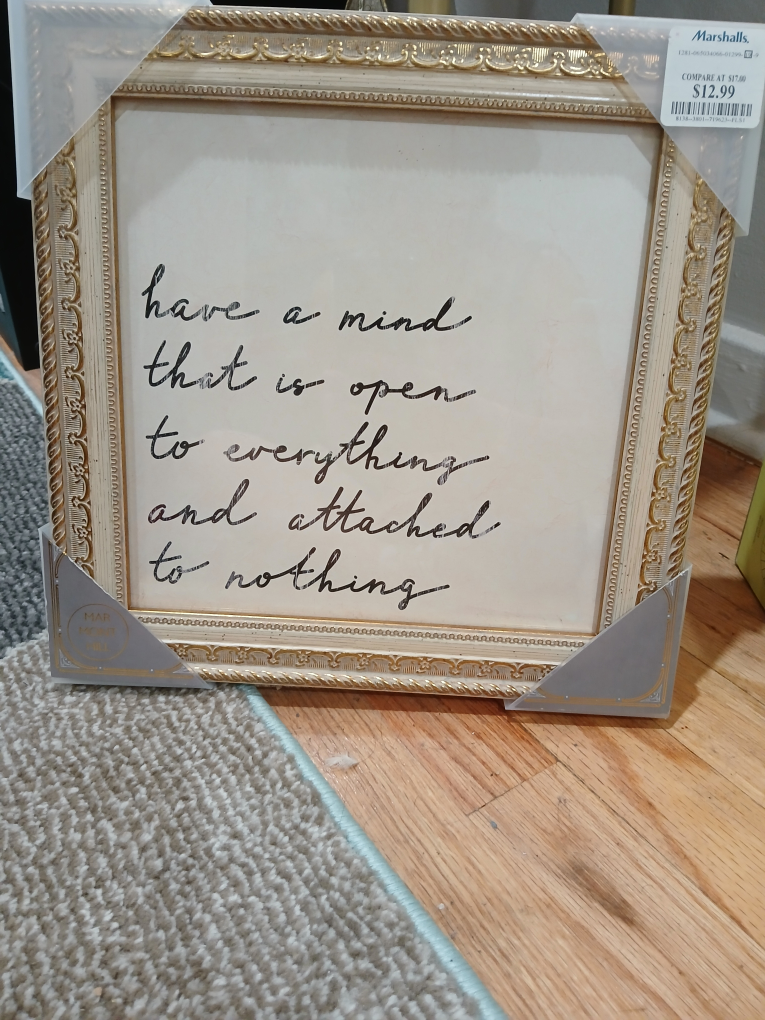 Marshalls.
COMPARE AT $17.00
$12.99
have a mind
that is open
to everything
and attached
to nothing